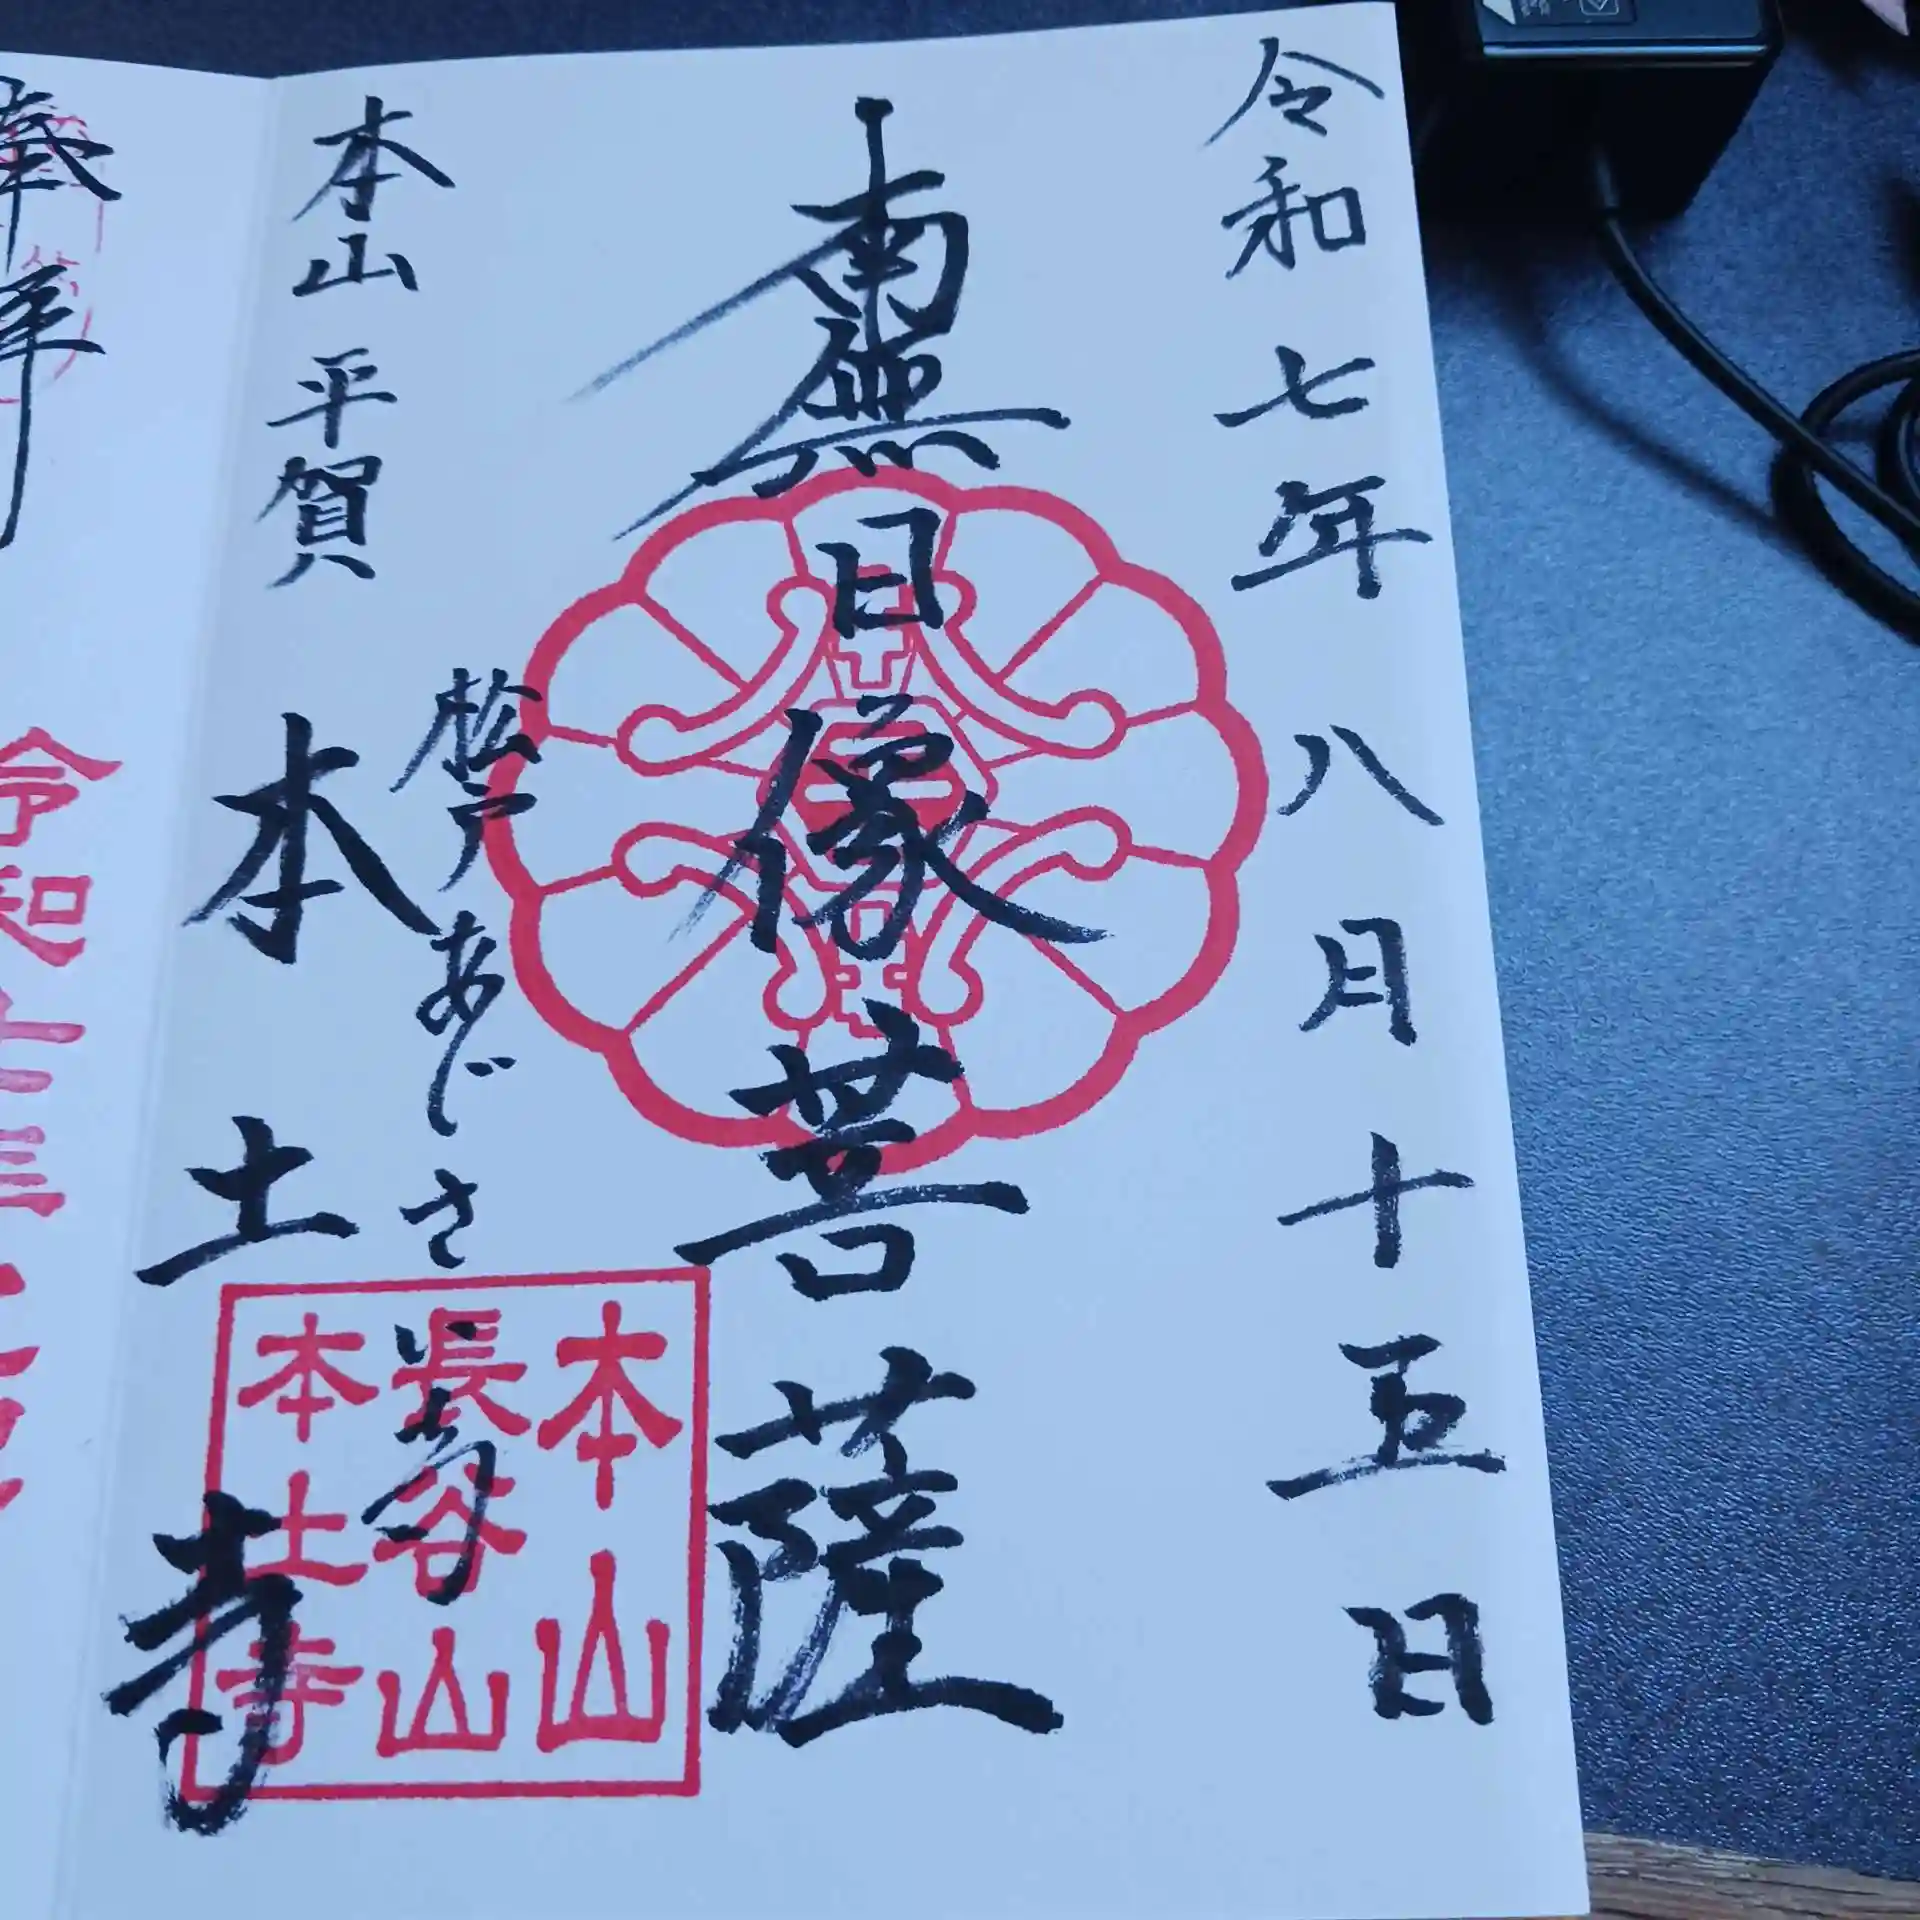 令和七年八月十五日
南無日像菩薩
本山 平賀
松戸あじさい寺
本土寺
本山
長谷山
本土寺
奉拝